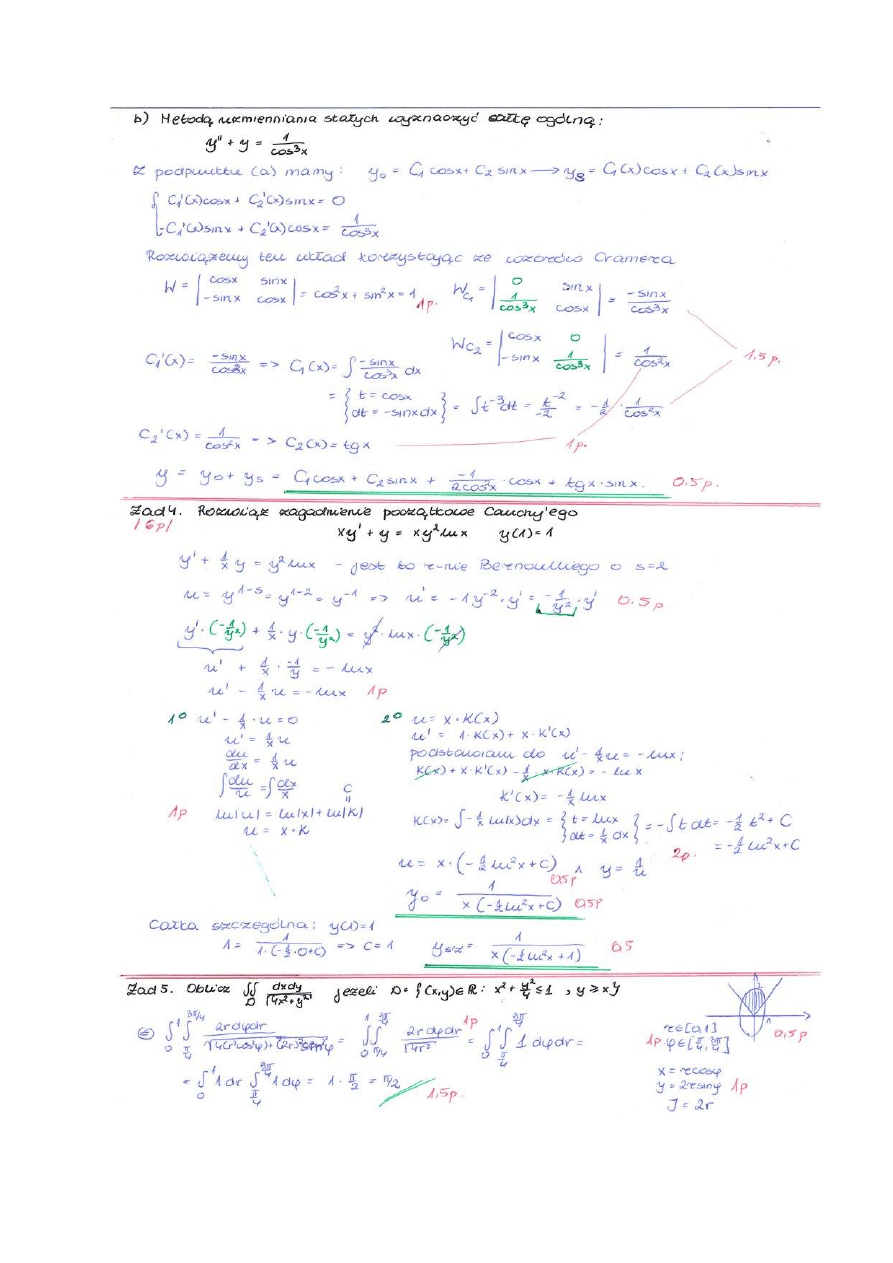 b) Metodą uzmienniania stałych wyznaczyć całkę ogólną:
y'' + y = 1/cos³x
Z podpunktu (a) mamy: y₀ = C₁ cosx + C₂ sinx ⟶ y_s = C₁(x)cosx + C₂(x)sinx
{ C₁'(x)cosx + C₂'(x)sinx = 0
-C₁'(x)sinx + C₂'(x)cosx = 1/cos³x
Rozwiązujemy ten układ korzystając ze wzorów Cramera
W = | cosx sinx ; -sinx cosx | = cos²x + sin²x = 1 1p. W_C₁ = | 0 sinx ; 1/cos³x cosx | = -sinx/cos³x
W_C₂ = | cosx 0 ; -sinx 1/cos³x | = 1/cos²x 1.5p.
C₁'(x) = -sinx/cos³x => C₁(x) = ∫ -sinx/cos³x dx
= { t = cosx ; dt = -sinxdx } = ∫t⁻³dt = t⁻²/-2 = -1/2 · 1/cos²x
C₂'(x) = 1/cos²x => C₂(x) = tgx 1p.
y = y₀ + y_s = C₁cosx + C₂sinx + -1/2cos²x · cosx + tgx · sinx. 0.5p.
Zad 4. Rozwiąż zagadnienie początkowe Cauchy'ego
/6p/ xy' + y = xy²lnx y(1)=1
y' + 1/x y = y²lnx - jest to r-nie Bernoulliego o s=2
u = y^(1-s) = y^(1-2) = y⁻¹ => u' = -1y⁻² · y' = -1/y² · y' 0.5p
y' · (-1/y²) + 1/x · y · (-1/y²) = y² · lnx · (-1/y²)
u' + 1/x · -1/y = -lnx
u' - 1/x u = -lnx 1p
1° u' - 1/x · u = 0
u' = 1/x u
du/dx = 1/x u
∫du/u = ∫dx/x C
1p ln|u| = ln|x| + ln|K|
u = x · K
2° u = x · K(x)
u' = 1 · K(x) + x · K'(x)
podstawiam do u' - 1/x u = -lnx:
K(x) + x · K'(x) - 1/x · x · K(x) = -lnx
K'(x) = -1/x lnx
K(x) = ∫ -1/x ln(x)dx = { t = lnx ; dt = 1/x dx } = -∫t dt = -1/2 t² + C
2p. = -1/2 ln²x + C
u = x · (-1/2 ln²x + C) 0.5p ∧ y = 1/u
y₀ = 1/x(-1/2 ln²x + C) 0.5p
Całka szczególna: y(1)=1
1 = 1/1·(-1/2·0+C) => C = 1 y_sz = 1/x(-1/2 ln²x + 1) 0.5
Zad 5. Oblicz ∬_D dxdy/√(4x²+y²) jeżeli D = {(x,y)∈R: x² + y²/4 ≤ 1, y ≥ x}
(=) ∫₀¹ ∫_{π/4}^{3π/4} 2rdφdr/√(4(r²cos²φ)+(2r)²sin²φ) = ∫₀¹ ∫_{π/4}^{3π/4} 2rdφdr/√(4r²) 1p = ∫₀¹ ∫_{π/4}^{3π/4} 1 dφdr =
= ∫₀¹ 1 dr ∫_{π/4}^{3π/4} 1 dφ = 1 · π/2 = π/2 1.5p.
2
1
0,5p
r∈[0,1]
1p φ∈[π/4, 3π/4]
x = rcosφ
y = 2rsinφ 1p
J = 2r